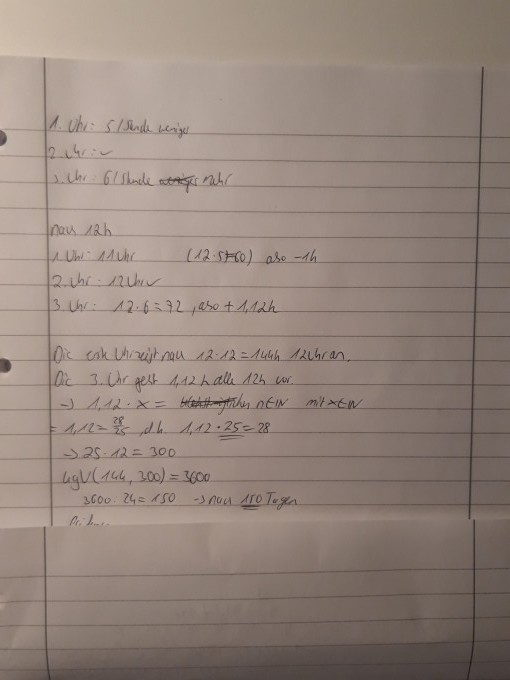 1. Uhr: 5/Stunde weniger
2. Uhr: ✓
3. Uhr: 6/Stunde weniger mehr
nach 12h
1. Uhr: 11Uhr (12·5=60) also -1h
2. Uhr: 12Uhr ✓
3. Uhr: 12·6=72, also +1,12h
Die erste Uhr zeigt nach 12·12=144h 12Uhr an.
Die 3. Uhr geht 1,12h alle 12h vor.
→ 1,12·x = n∈ℕ mit x∈ℕ
= 1,12 = 28/25, d.h. 1,12·25=28
→ 25·12=300
kgV(144, 300)=3600
3600:24=150 → nach 150 Tagen